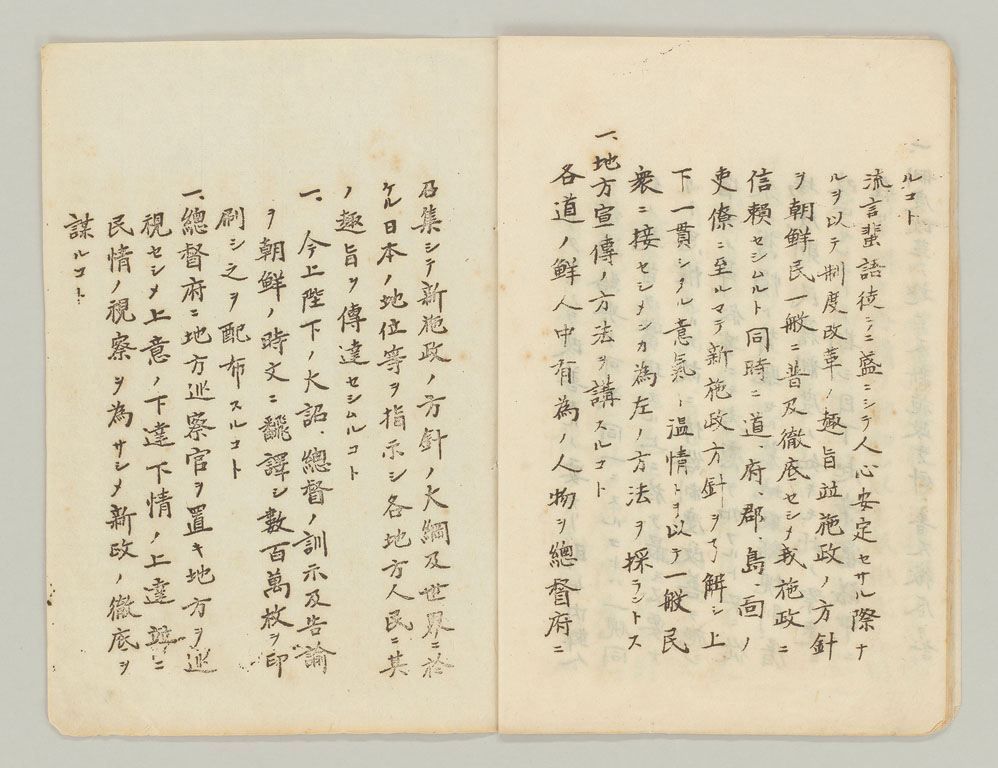 ルコト
流言蜚語徒ラニ盛ニシテ人心安定セサル際ナ
ルヲ以テ制度改革ノ趣旨竝施政ノ方針
ヲ朝鮮民一般ニ普及徹底セシメ我施政ニ
信頼セシムルト同時ニ道、府、郡、島面ノ
吏僚ニ至ルマテ新施政方針ヲ了解シ上
下一貫シタル意氣ト温情トヲ以テ一般民
衆ニ接セシメンカ為左ノ方法ヲ採ラントス
一、地方宣傳ノ方法ヲ講スルコト
各道ノ鮮人中有為ノ人物ヲ總督府ニ
召集シテ新施政ノ方針ノ大綱及世界ニ於
ケル日本ノ地位等ヲ指示シ各地方人民ニ其
ノ趣旨ヲ傳達セシムルコト
一、今上陛下ノ大詔、總督ノ訓示及告諭
ヲ朝鮮ノ時文ニ飜譯シ數百萬枚ヲ印
刷シ之ヲ配布スルコト
一、總督府ニ地方巡察官ヲ置キ地方ヲ巡
視セシメ上意ノ下達下情ノ上達竝ニ
民情ノ視察ヲ為サシメ新政ノ徹底ヲ
謀ルコト